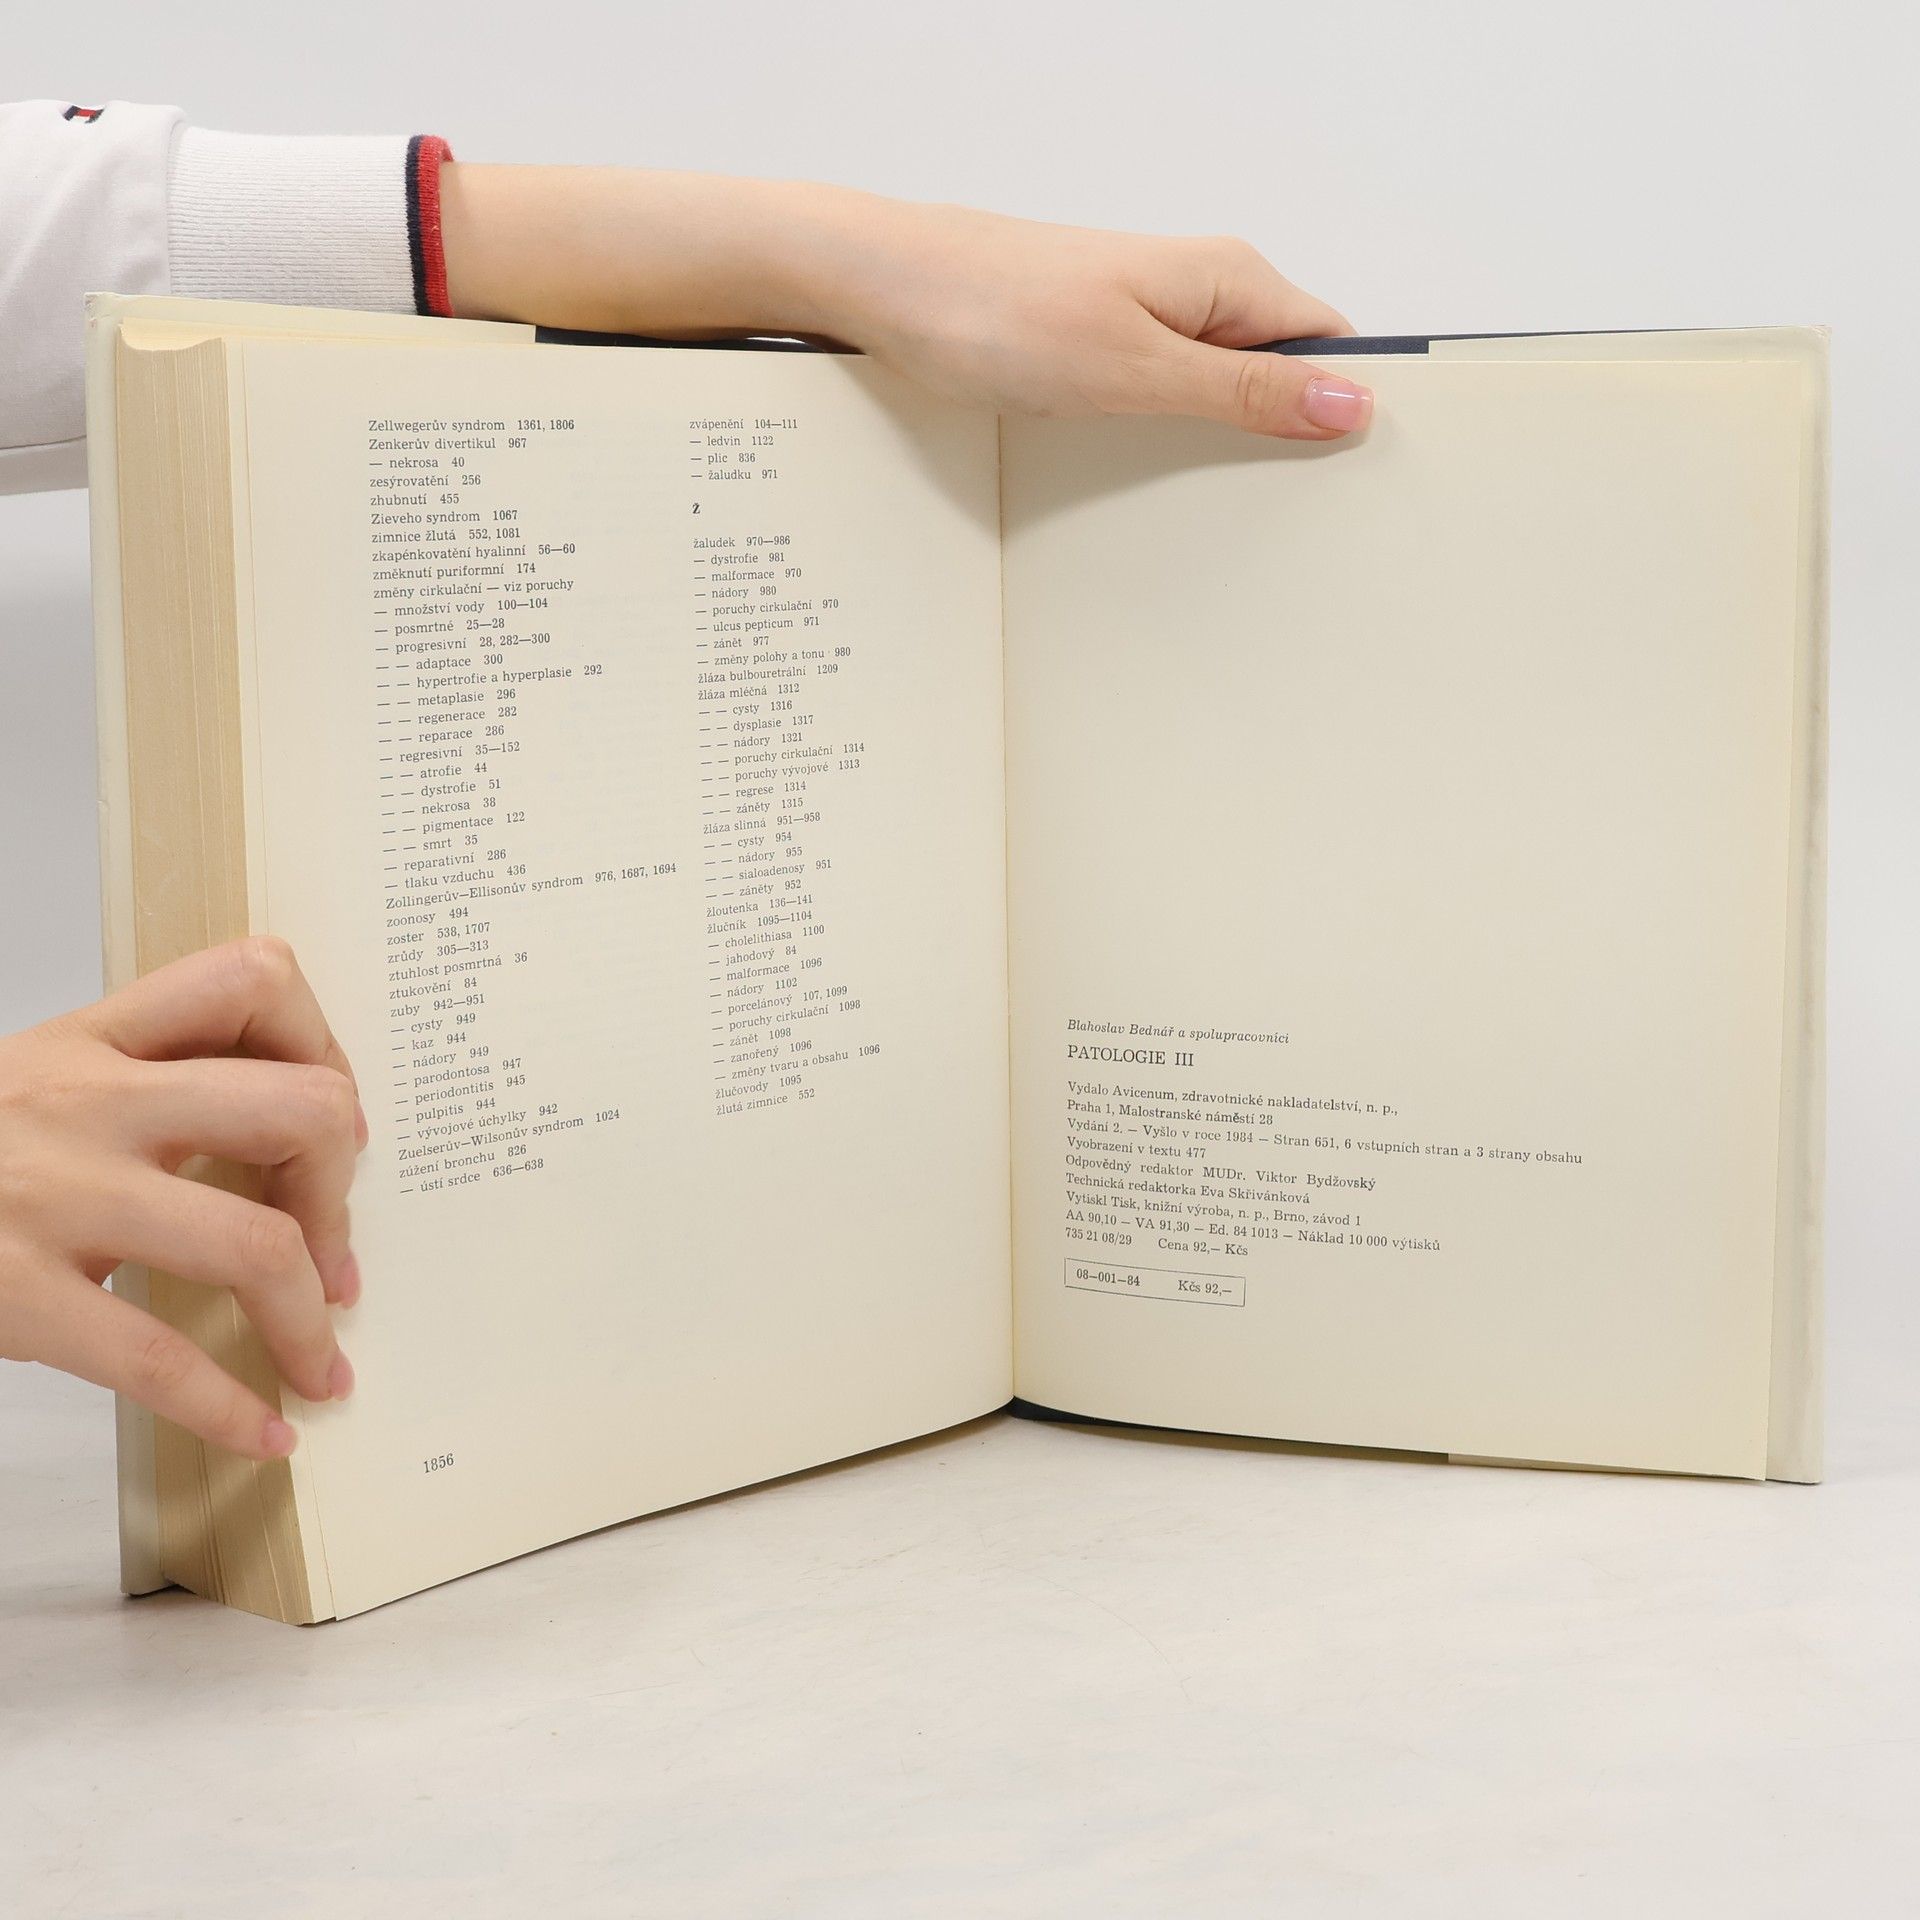 Zellwegerův syndrom 1361, 1806
Zenkerův divertikul 967
— nekrosa 40
zesýrovatění 256
zhubnutí 455
Zieveho syndrom 1067
zimnice žlutá 552, 1081
zkapénkovatění hyalinní 56—60
změknutí puriformní 174
změny cirkulační — viz poruchy
— množství vody 100—104
— posmrtné 25—28
— progresivní 28, 282—300
— — adaptace 300
— — hypertrofie a hyperplasie 292
— — metaplasie 296
— — regenerace 282
— — reparace 286
— regresivní 35—152
— — atrofie 44
— — dystrofie 51
— — nekrosa 38
— — pigmentace 122
— — smrt 35
— reparativní 286
— tlaku vzduchu 436
Zollingerův—Ellisonův syndrom 976, 1687, 1694
zoonosy 494
zoster 538, 1707
zrůdy 305—313
ztuhlost posmrtná 36
ztukovění 84
zuby 942—951
— cysty 949
— kaz 944
— nádory 949
— parodontosa 947
— periodontitis 945
— pulpitis 944
— vývojové úchylky 942
Zuelserův—Wilsonův syndrom 1024
zúžení bronchu 826
— ústí srdce 636—638
zvápenění 104—111
— ledvin 1122
— plic 836
— žaludku 971
Ž
žaludek 970—986
— dystrofie 981
— malformace 970
— nádory 980
— poruchy cirkulační 970
— ulcus pepticum 971
— zánět 977
— změny polohy a tonu 980
žláza bulbouretrální 1209
žláza mléčná 1312
— — cysty 1316
— — dysplasie 1317
— — nádory 1321
— — poruchy cirkulační 1314
— — poruchy vývojové 1313
— — regrese 1314
— — záněty 1315
žláza slinná 951—958
— — cysty 954
— — nádory 955
— — sialoadenosy 951
— — záněty 952
žloutenka 136—141
žlučník 1095—1104
— cholelithiasa 1100
— jahodový 84
— malformace 1096
— nádory 1102
— porcelánový 107, 1099
— poruchy cirkulační 1098
— zánět 1098
— zanořený 1096
— změny tvaru a obsahu 1096
žlučovody 1095
žlutá zimnice 552
1856
Blahoslav Bednář a spolupracovníci
PATOLOGIE III
Vydalo Avicenum, zdravotnické nakladatelství, n. p.,
Praha 1, Malostranské náměstí 28
Vydání 2. — Vyšlo v roce 1984 — Stran 651, 6 vstupních stran a 3 strany obsahu
Vyobrazení v textu 477
Odpovědný redaktor MUDr. Viktor Bydžovský
Technická redaktorka Eva Skřivánková
Vytiskl Tisk, knižní výroba, n. p., Brno, závod 1
AA 90,10 — VA 91,30 — Ed. 84 1013 — Náklad 10 000 výtisků
735 21 08/29 Cena 92,— Kčs
08—001—84 Kčs 92,—